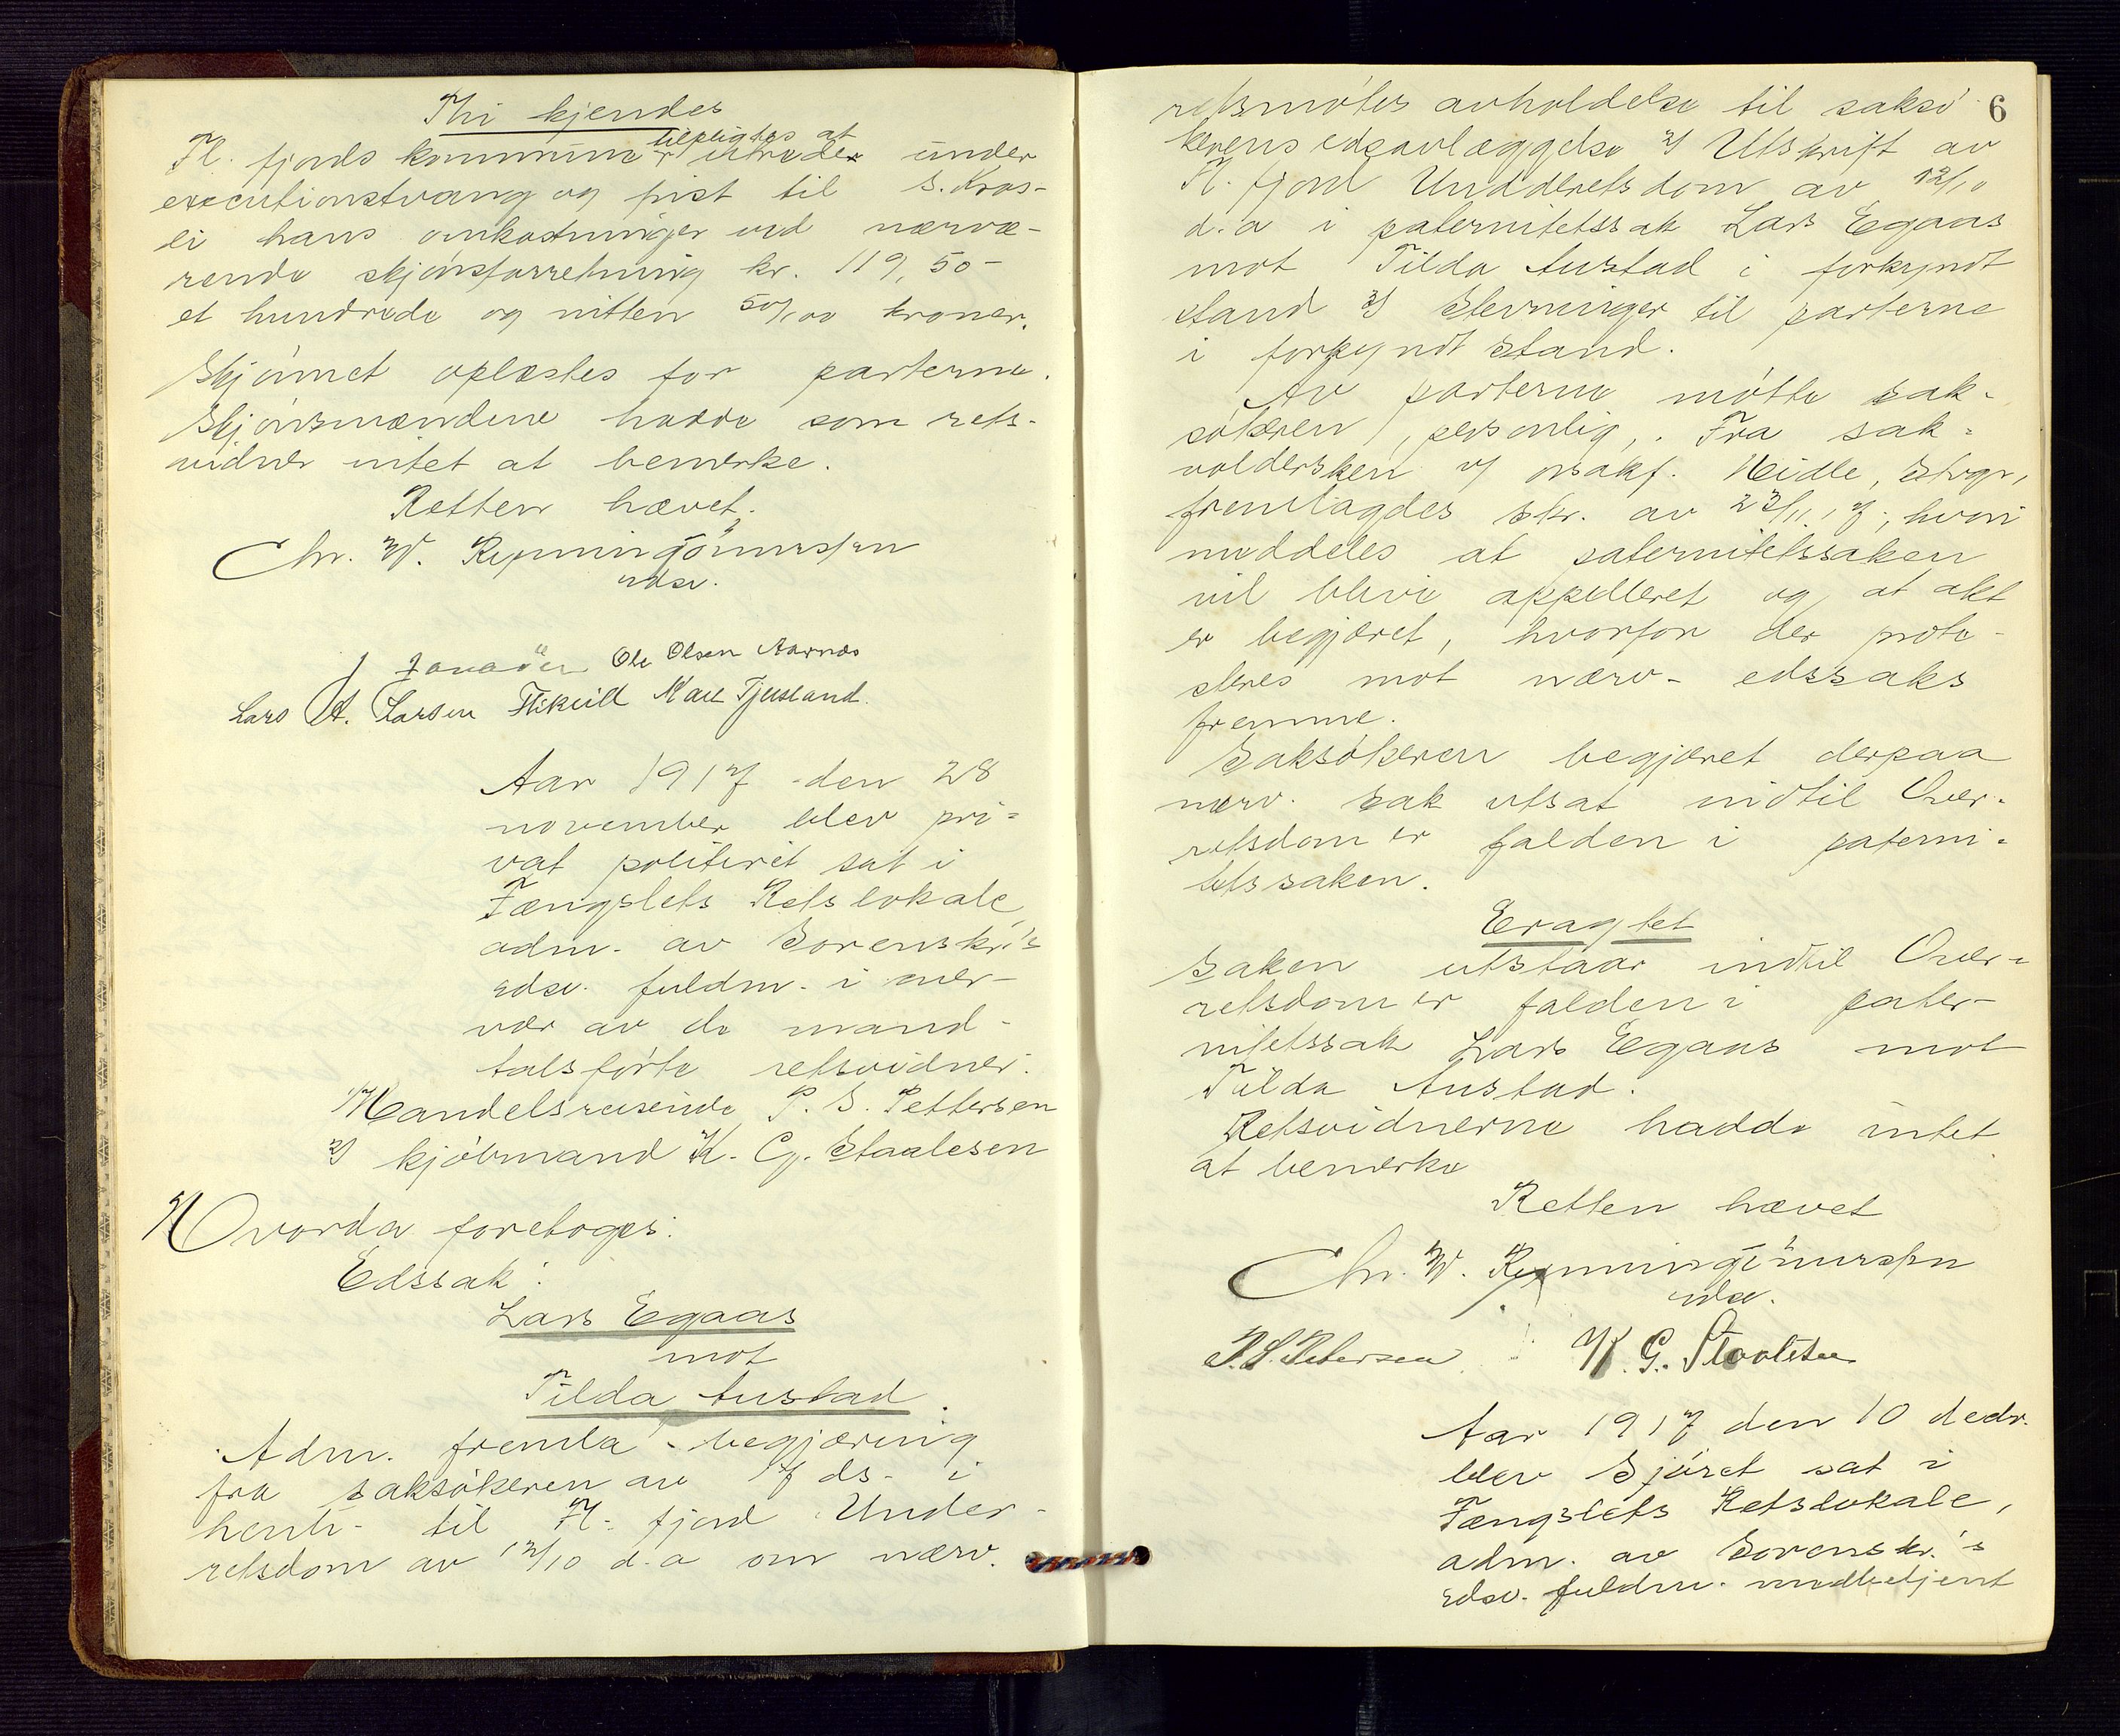 Thi kjendes
tilpligtes at
Fl. fjords kommune utrede under
executionstvang og frist til S. Kros-
li hans omkostninger ved nærvæ-
rende skjønsforretning kr. 119,50-
et hundrede og nitten 50/100 kroner.
Skjønnet oplæstes for parterne.
Skjønsmændene hadde som rets-
vidner intet at bemerke.
Retten hævet.
Chr. W. Rynning
edsv.
Ole Olsen Aarnæs
Lars A. Larsen Flikeid Karl Tjusland.
Aar 1917 den 28
november blev pri=
vat politiret sat i
Fængslets Retslokale,
adm. av Sorenskr's
edsv. fuldm. i over-
vær av de mand-
talsførte retsvidner:
1/ Handelsreisende P. S. Pettersen
2/ kjøbmand K. G. Staalesen
Hvorda foretoges:
Edssak:
Lars Egaas
mot
Tilda Austad.
Adm. fremla - begjæring
fra saksøkeren av 17 ds. i
henh- til Fl. fjord Under-
retsdom av 12/10 d.a om nærv.
6
retsmøtes avholdelse til saksø-
kerens edsavlæggelse 2) Utskrift av
Fl. fjord Underretsdom av 12/10
d.a i paternitetssak Lars Egaas
mot Tilda Austad i forkyndt
stand 3) Stevninger til parterne
i forkyndt stand.
Av parterne møtte sak-
søkeren, personlig,. Fra sak=
voldersken v/ osakf. Heidle, Strgr,
fremlagdes skr. av 23/11 17, hvori
meddeles at paternitetssaken
vil blive appelleret og at akt
er begjæret, hvorfor der prote-
steres mot nærv- edssaks
fremme.
Saksøkeren begjæret derpaa
nærv. sak utsat indtil Over-
retsdom er falden i paterni=
tetssaken.
Eragtet
Saken utstaar indtil Over-
retsdom er falden i pater-
nitetssak Lars Egaas mot
Tilda Austad.
Retsvidnerne hadde intet
at bemerke
Retten hævet
Chr. W. Rynning
edsv.
P. S. Petersen K. G. Staalesen
Aar 1917 den 10 decbr.
blev Sjøret sat i
Fængslets Retslokale,
adm. av Sorenskr.'s
edsv. fuldm. medbetjent